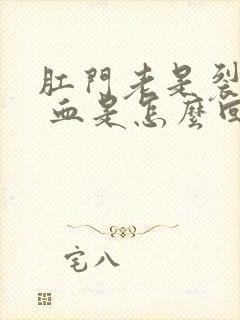 肛門老是裂
血是怎麼回
宅八